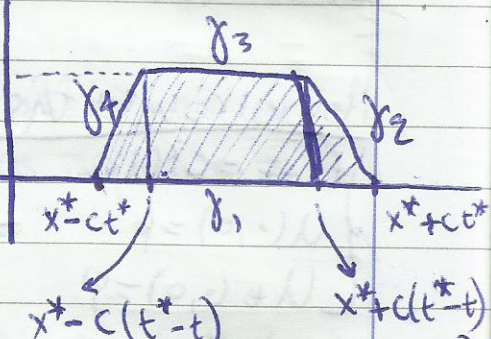 γ3
γ4
γ2
x*-ct*
γ1
x*+ct*
x*-c(t*-t)
x*+c(t*-t)